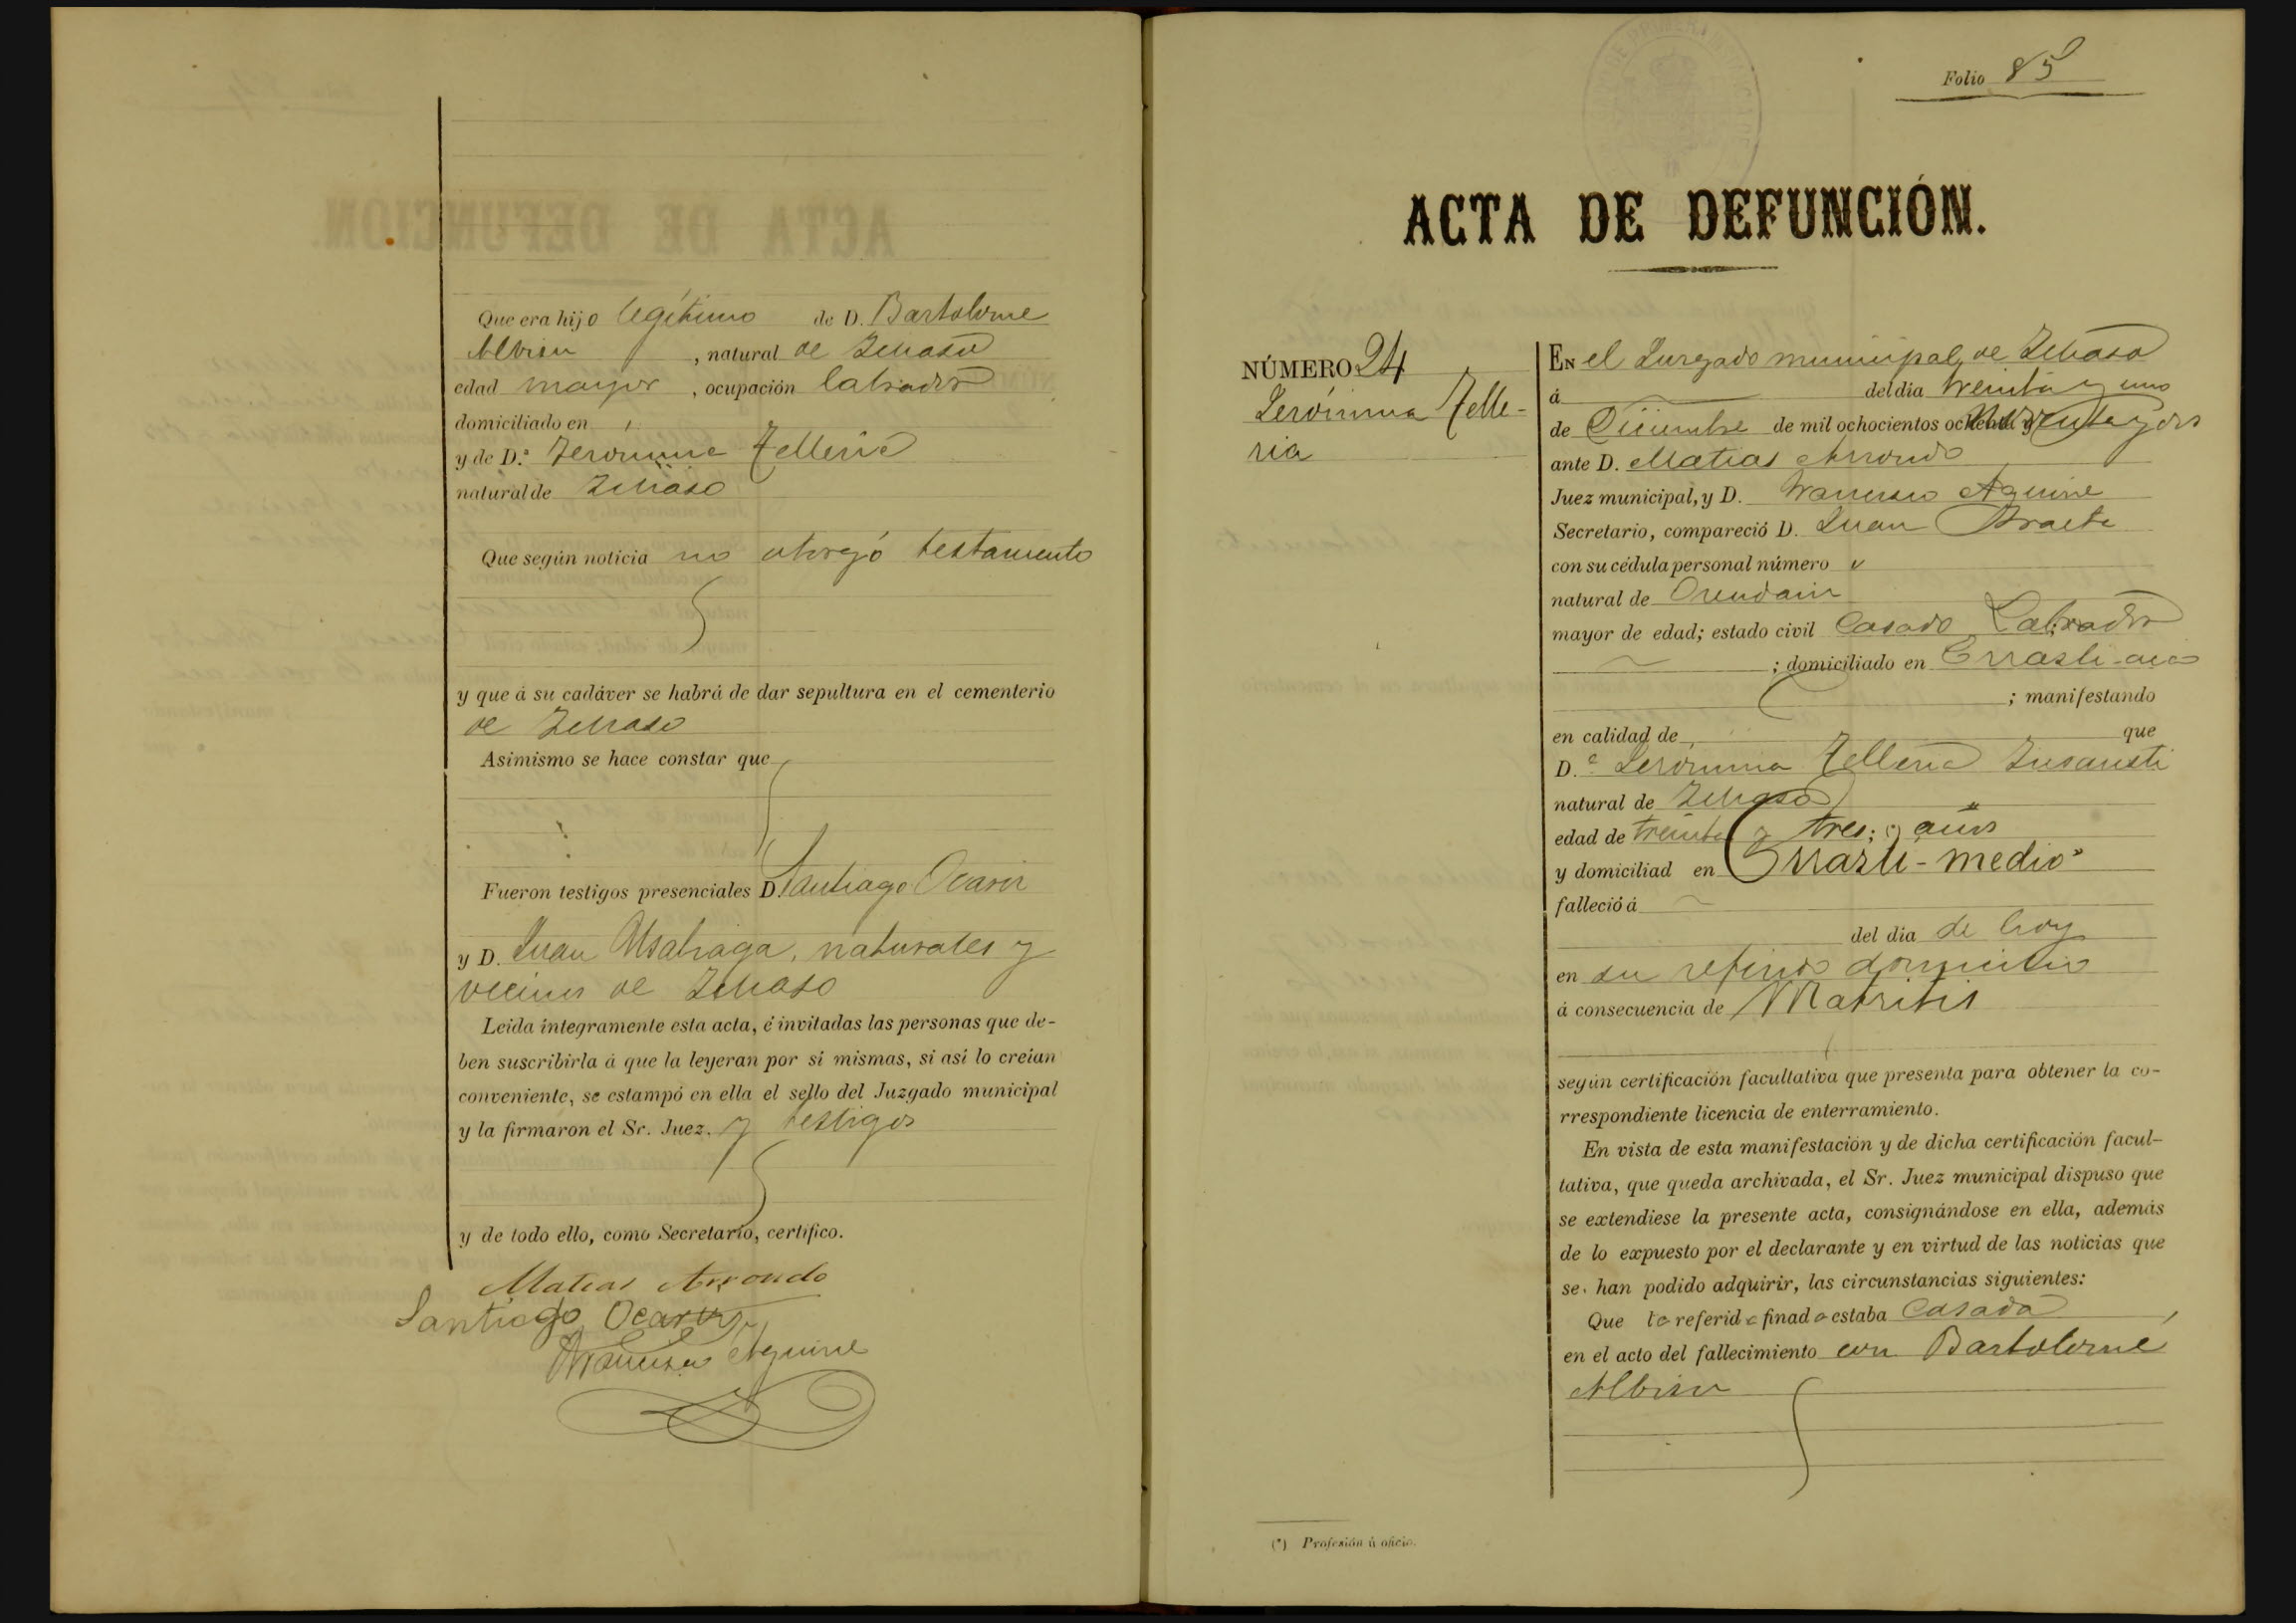 Que era hijo legítimo de D. Bartolome
Albisu, natural de Ichaso
edad mayor, ocupación labrador
domiciliado en
y de D.ª Jeronima Telleria
natural de Ichaso
Que según noticia no otorgó testamento
y que á su cadáver se habrá de dar sepultura en el cementerio
de Ichaso
Asimismo se hace constar que
Fueron testigos presenciales D. Santiago Ocariz
y D. Juan Usabiaga, naturales y
vecinos de Ichaso
Leida íntegramente esta acta, é invitadas las personas que de-
ben suscribirla á que la leyeran por sí mismas, si así lo creían
conveniente, se estampó en ella el sello del Juzgado municipal
y la firmaron el Sr. Juez. y testigos
y de todo ello, como Secretario, certifico.
Matias Arrondo
Santiago Ocariz
Francisco Aguirre
Folio 85
ACTA DE DEFUNCIÓN.
NÚMERO 24
Jerónima Telle-
ria
EN el Juzgado municipal de Ichaso
á del dia treinta y uno
de Diciembre de mil ochocientos noventa y dos
ante D. Matias Arrondo
Juez municipal, y D. Francisco Aguirre
Secretario, compareció D. Juan
con su cédula personal número
natural de Orendain
mayor de edad; estado civil Casado Labrador
; domiciliado en Errasti
; manifestando
en calidad de que
D.ª Jeronima Telleria Insausti
natural de Ichaso
edad de treinta y tres; años
y domiciliad en Errasti-medio
falleció á
del dia de hoy
en su referido domicilio
á consecuencia de Matritis
según certificación facultativa que presenta para obtener la co-
rrespondiente licencia de enterramiento.
En vista de esta manifestación y de dicha certificación facul-
tativa, que queda archivada, el Sr. Juez municipal dispuso que
se extendiese la presente acta, consignándose en ella, además
de lo expuesto por el declarante y en virtud de las noticias que
se han podido adquirir, las circunstancias siguientes:
Que la referida finada estaba Casada,
en el acto del fallecimiento con Bartolomé
Albisu
(*) Profesión ú oficio.